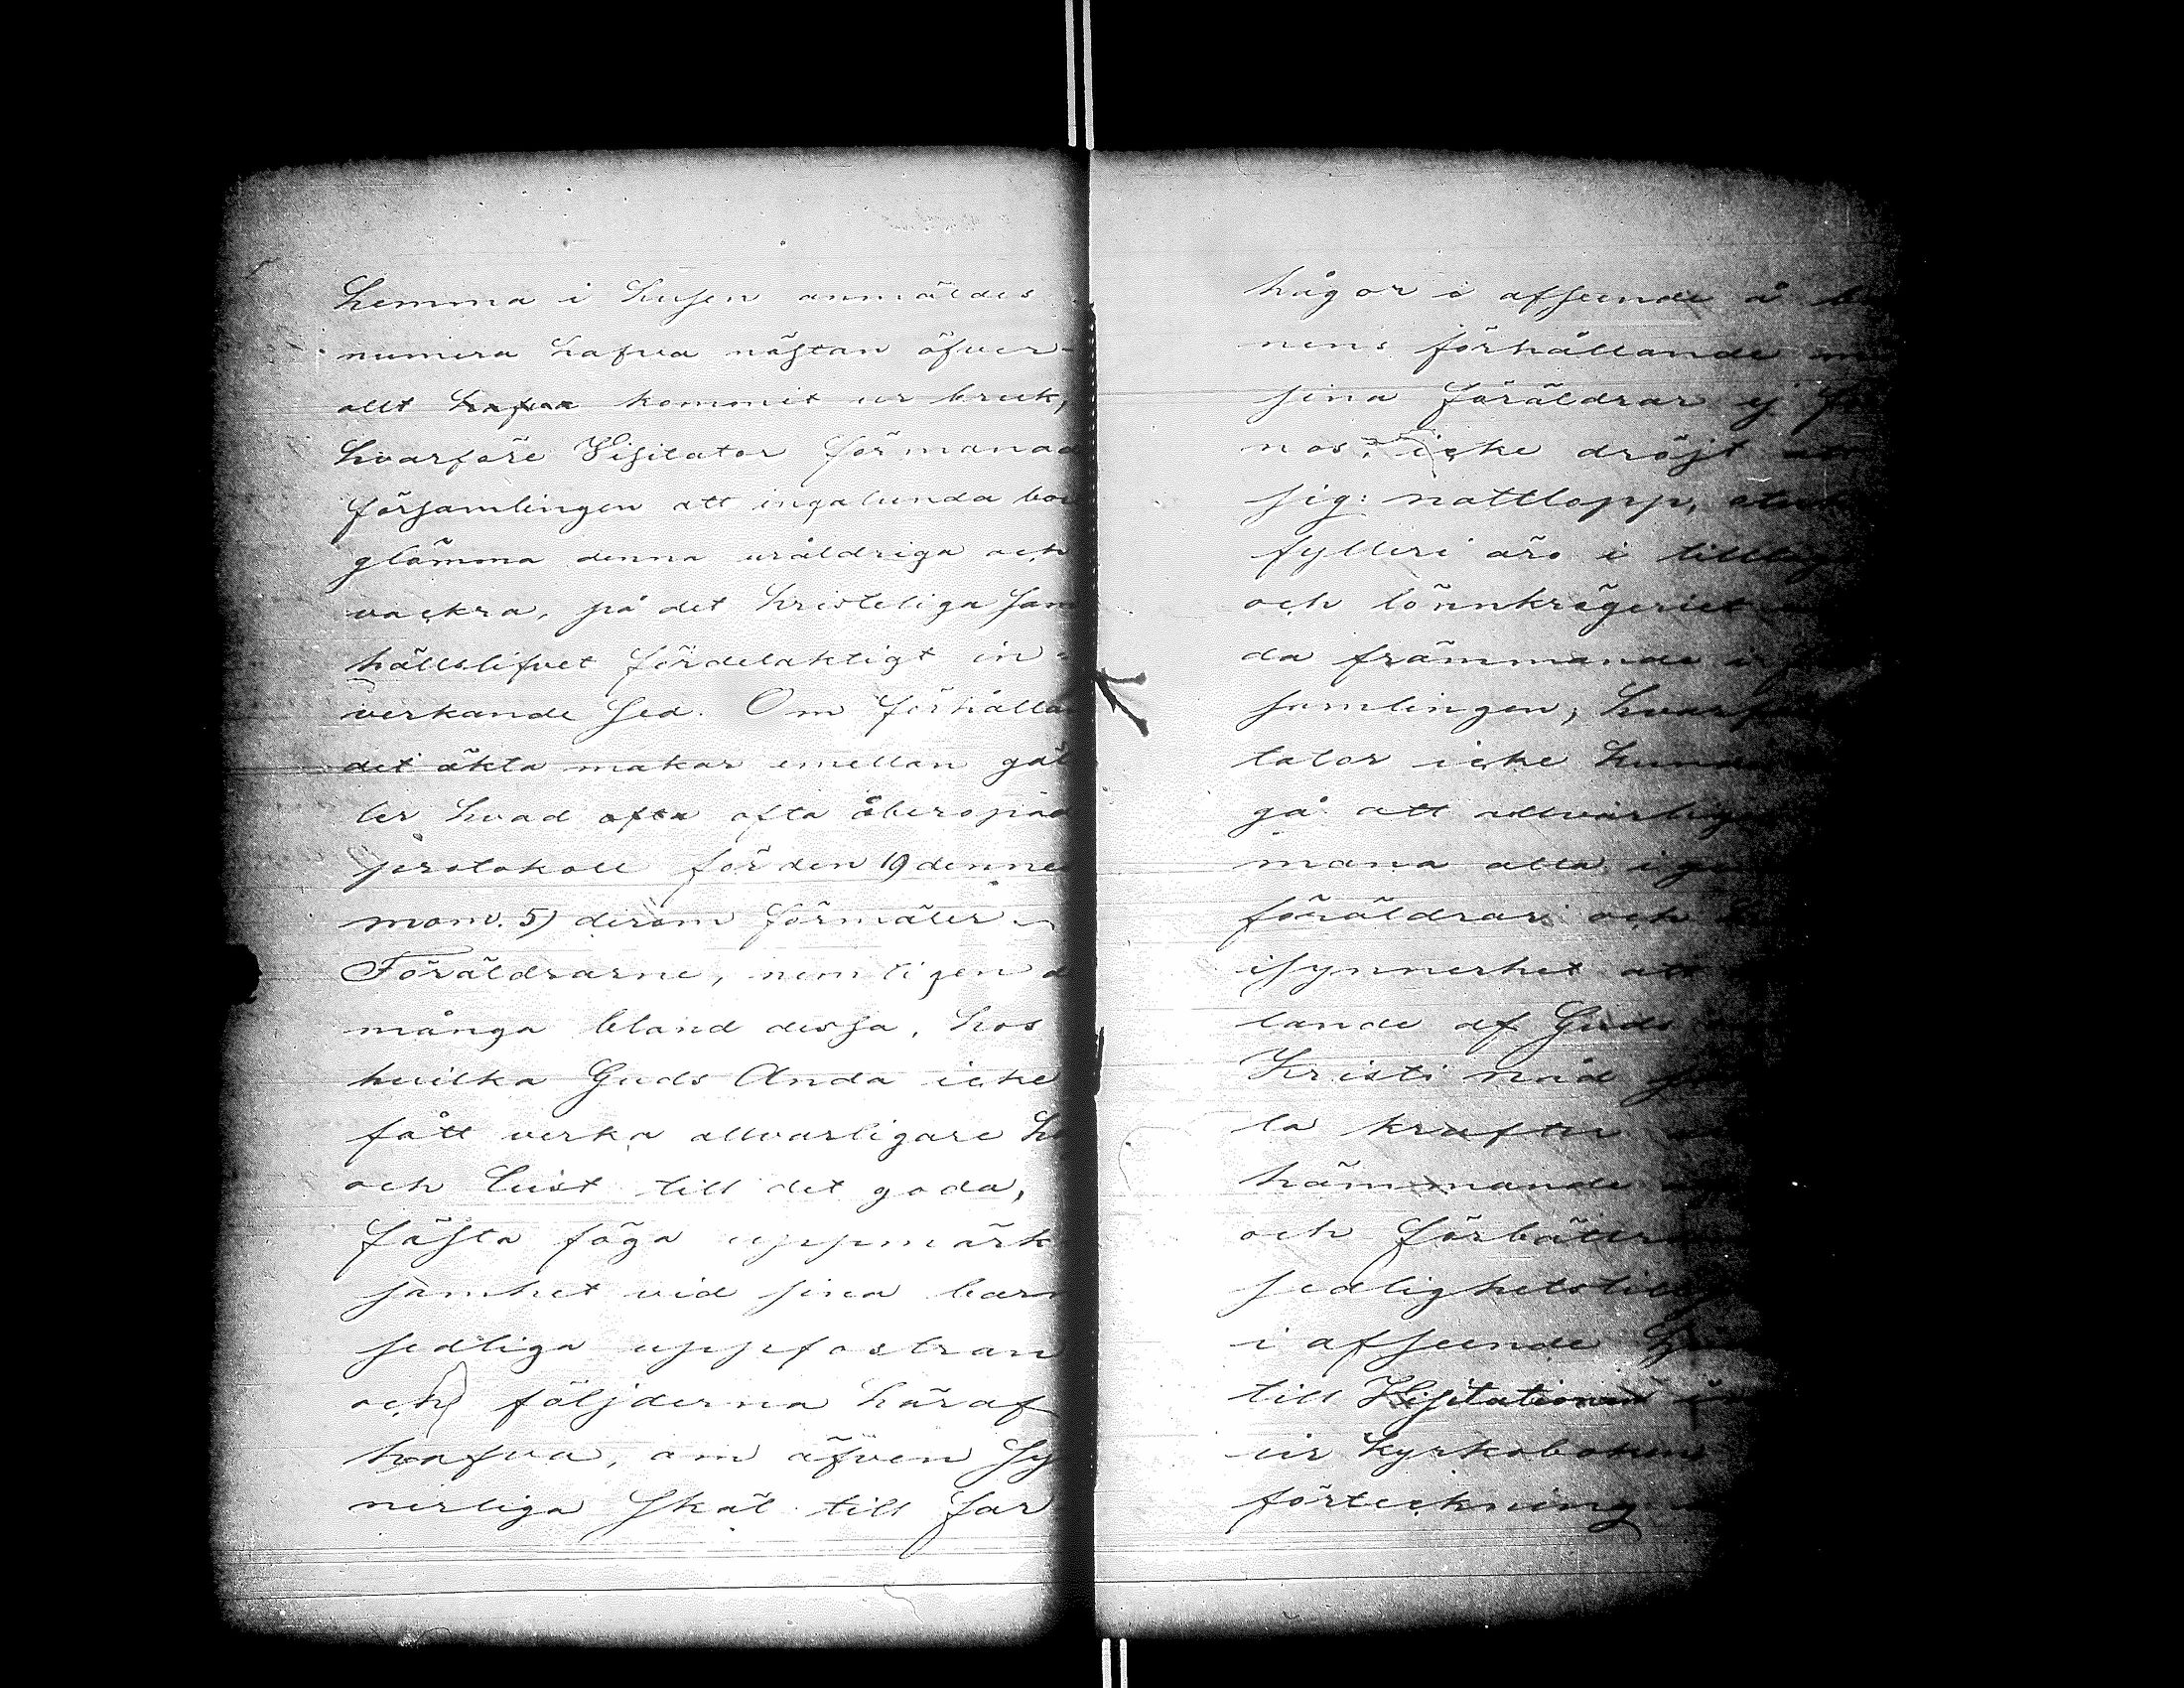 hemma i husen anmäldes
numera hafva nästan öfver-
allt hafva kommit ur bruk,
hvarföre Visitator förmanad
församlingen att ingalunda bor
glömma denna uråldriga och
vackra, på det kristeliga sam
hällslifvet fördelaktigt in-
verkande sed. Om förhålla
det äkta makar emellan gäl
ler hvad ofta ofta åberopad
protokoll för den 19 denne
mom. 5) derom förmäler
Föräldrarne, nemligen d
många bland dessa, hos
hvilka Guds Anda icke
fått verka allvarligare
och lust till det goda,
fästa föga uppmärk
samhet vid sina barn
sedliga uppfostran
och följderna häraf
hafva, om äfven sy
nerliga skäl till far
hågor i afseende å
nens förhållande
sina föräldrar ej
nos, icke dröjt
sig: nattlopp,
fylleri äro i tilltag
och lönnkrögeriet
da främmande
samlingen, hvarfö
tator icke kunn
gå att allvarlig
mana alla, i
föräldrar och
isynnerhet att
lande af Guds
Kristi nåd
la krafter
hämmande
och förbättra
sedlighetstill
i afseende
till Visitationen
ur kyrkoboken
förteckning